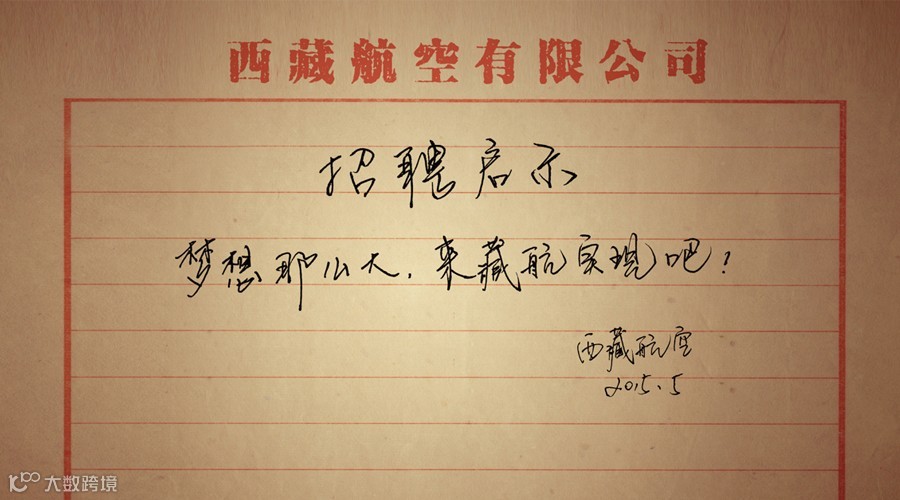 西藏航空有限公司
招聘启示
梦想那么大，来藏航实现吧！
西藏航空
2015.5
大数跨境